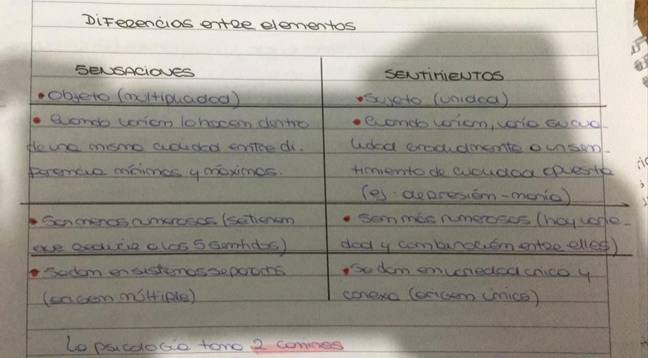 Diferencias entre elementos
SENSACIONES
SENTIMIENTOS
• Objeto (multiplicidad)
• Sujeto (unidad)
• Cuando varían lo hacen dentro
de una misma cualidad entre di-
ferencias mínimas y máximas.
• Cuando varían, varía su cua-
lidad gradualmente a un sen-
timiento de cualidad opuesta
(ej: depresión-manía)
• Son menos numerosas (se tienen
que reducir a los 5 sentidos)
• Son más numerosos (hay varie-
dad y combinación entre ellos)
• Se dan en sistemas separados
(origen múltiple)
• Se dan en unidad única y
conexa (origen único)
La psicología tomó 2 caminos